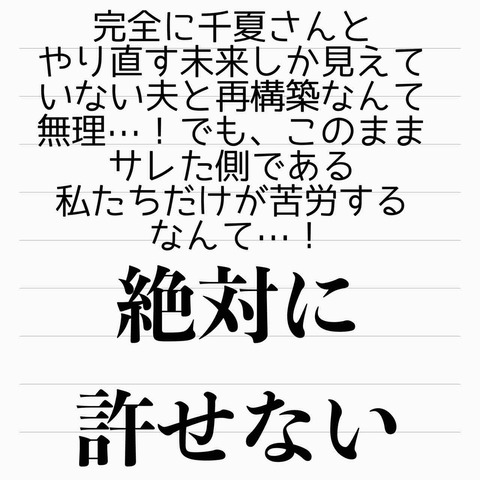 完全に千夏さんと
やり直す未来しか見えて
いない夫と再構築なんて
無理…！でも、このまま
サレた側である
私たちだけが苦労する
なんて…！
絶対に
許せない